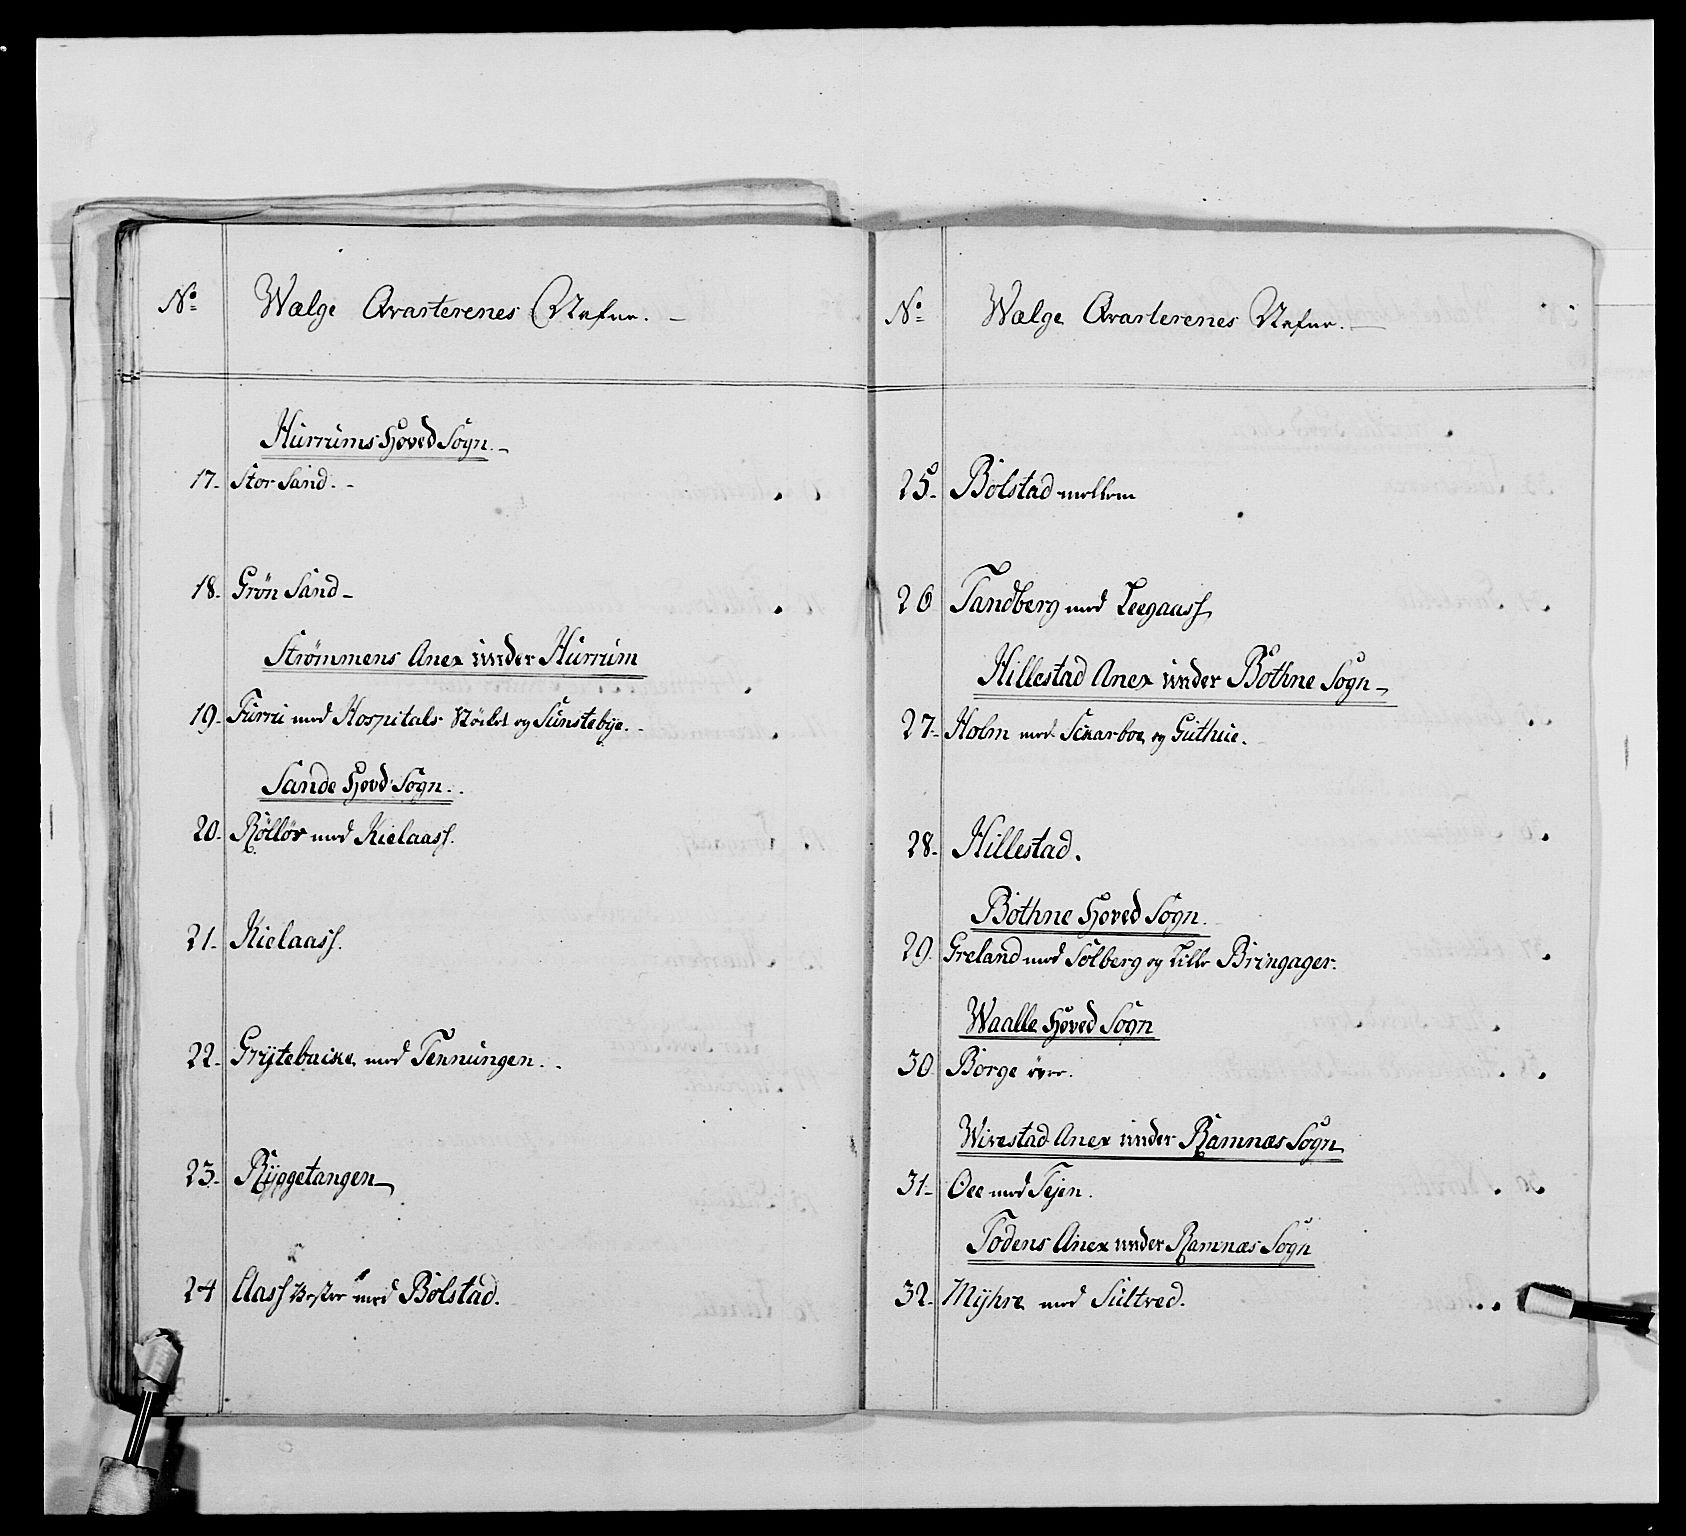 No
Wælge Qvarterenes Nafne. —
Hurrums Hoved Sogn. —
17. Stor Sand. -
18. Grön Sand -
Strömmens Anex under Hurrum
19. Furru med Hospitals og Sunstebye. -
Sande Hovd Sogn. .
20. Röllör med Kielaass.
21. Kielaass.
22. Grÿtebakke med Tennungen. .
23. Rÿggetangen
24 Aass Vester med Bolstad.
No
Wælge Qvarterenes Nafne. —
25. Bolstad mellem
26 Tandberg med Leegaass
Hillestad Anex under Bothne Sogn —
27. Holm med Skarboe og Guthue.
28. Hillestad.
Bothne Hoved Sogn.
29. Greland med Solberg og Lille Bringager.
Waalle Hoved Sogn
30. Borge övre.
Wivestad Anex under Ramnæs Sogn
31. Oee med Fejen.
Fodens Anex under Ramnæs Sogn
32. Mÿhre med Sultved.